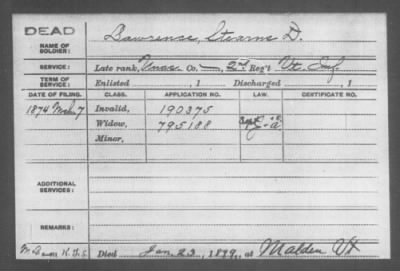 DEAD
NAME OF SOLDIER:
Lawrence, Stearns D.
SERVICE:
Late rank, Unas Co. — , 2nd Reg't Vt. Inf.
TERM OF SERVICE:
Enlisted , 1 Discharged , 1
DATE OF FILING. CLASS. APPLICATION NO. LAW. CERTIFICATE NO.
1874 Mch. 7 Invalid, 190375
Widow, 795188
Minor,
ADDITIONAL SERVICES:
REMARKS:
Died Jan. 23, 1899, at Malden Vt